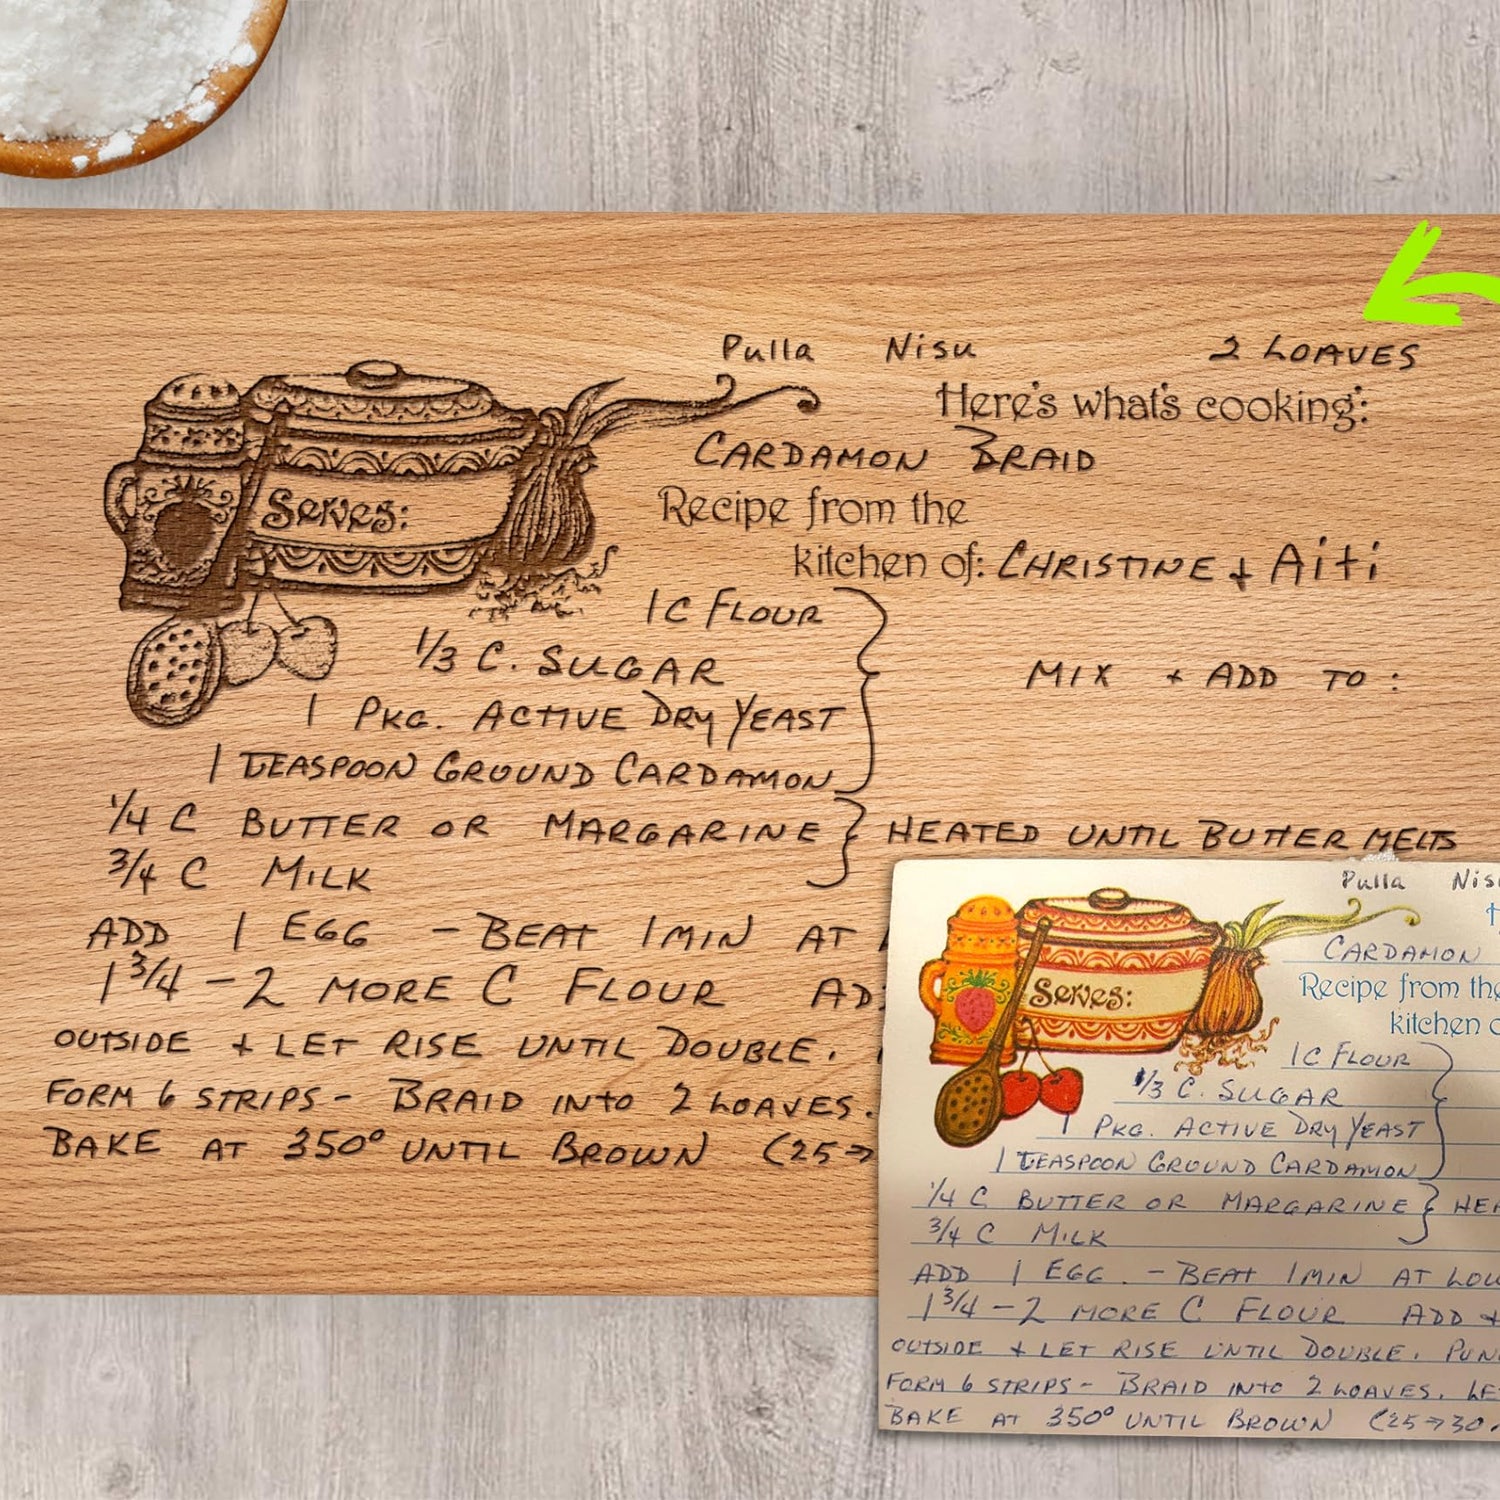 Pulla Nisu 2 LOAVES
Here's what's cooking:
CARDAMON BRAID
Serves:
Recipe from the
kitchen of: CHRISTINE + Aiti
1 C FLOUR
1/3 C. SUGAR
MIX + ADD TO :
1 PKG. ACTIVE DRY YEAST
1 TEASPOON GROUND CARDAMON
1/4 C BUTTER OR MARGARINE HEATED UNTIL BUTTER MELTS
3/4 C MILK
ADD 1 EGG - BEAT 1 MIN AT
1 3/4 - 2 MORE C FLOUR AD
OUTSIDE + LET RISE UNTIL DOUBLE.
FORM 6 STRIPS - BRAID INTO 2 LOAVES.
BAKE AT 350° UNTIL BROWN (25→
Pulla Nisu
CARDAMON
Serves:
Recipe from the
kitchen o
1 C FLOUR
1/3 C. SUGAR
1 PKG. ACTIVE DRY YEAST
1 TEASPOON GROUND CARDAMON
1/4 C BUTTER OR MARGARINE HEA
3/4 C MILK
ADD 1 EGG. - BEAT 1 MIN AT LOW
1 3/4 - 2 MORE C FLOUR ADD +
OUTSIDE + LET RISE UNTIL DOUBLE. PUN
FORM 6 STRIPS - BRAID INTO 2 LOAVES. LE
BAKE AT 350° UNTIL BROWN (25→30